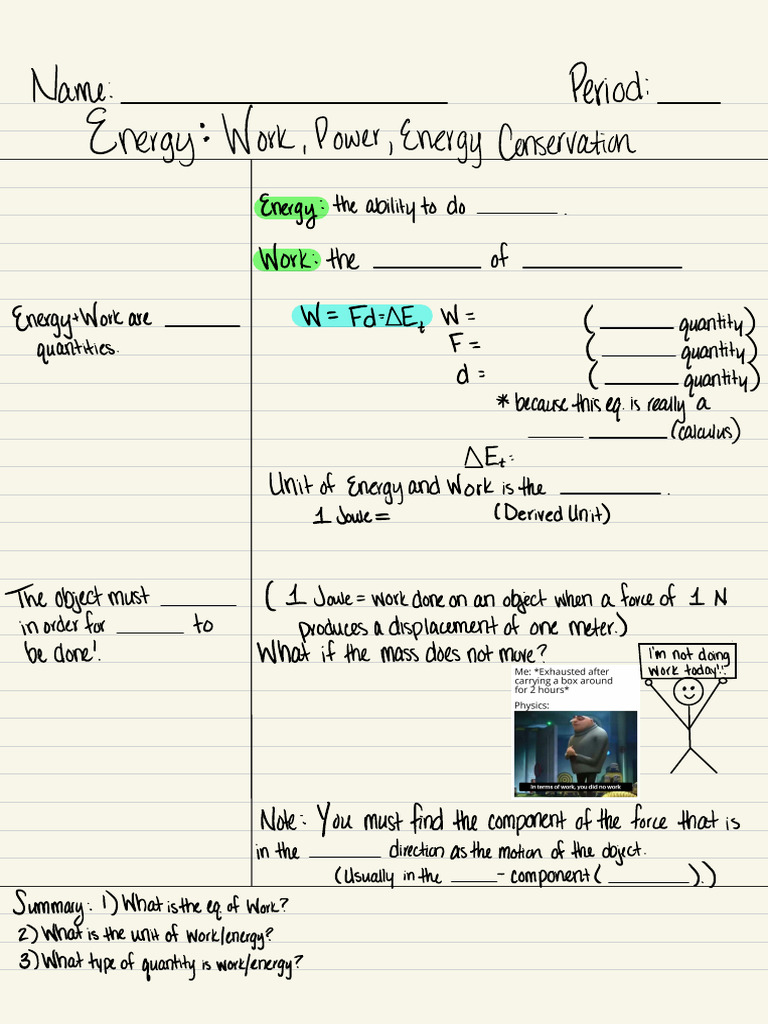 Name: ____________________ Period: ____
Energy: Work, Power, Energy Conservation
Energy: the ability to do ______.
Work: the ________ of ____________
Energy + Work are ______
quantities.
W = Fd = ΔEt W = (______ quantity)
F = (______ quantity)
d = (______ quantity)
* because this eq. is really a
____ ______ (calculus)
ΔEt:
Unit of Energy and Work is the ________.
1 Joule = (Derived Unit)
The object must ______
in order for _____ to
be done!
( 1 Joule = work done on an object when a force of 1 N
produces a displacement of one meter.)
What if the mass does not move?
I'm not doing
work today!!
Me: *Exhausted after
carrying a box around
for 2 hours*
Physics:
In terms of work, you did no work
Note: You must find the component of the force that is
in the ______ direction as the motion of the object.
(Usually in the ____ - component (______).)
Summary: 1) What is the eq. of Work?
2) What is the unit of work/energy?
3) What type of quantity is work/energy?